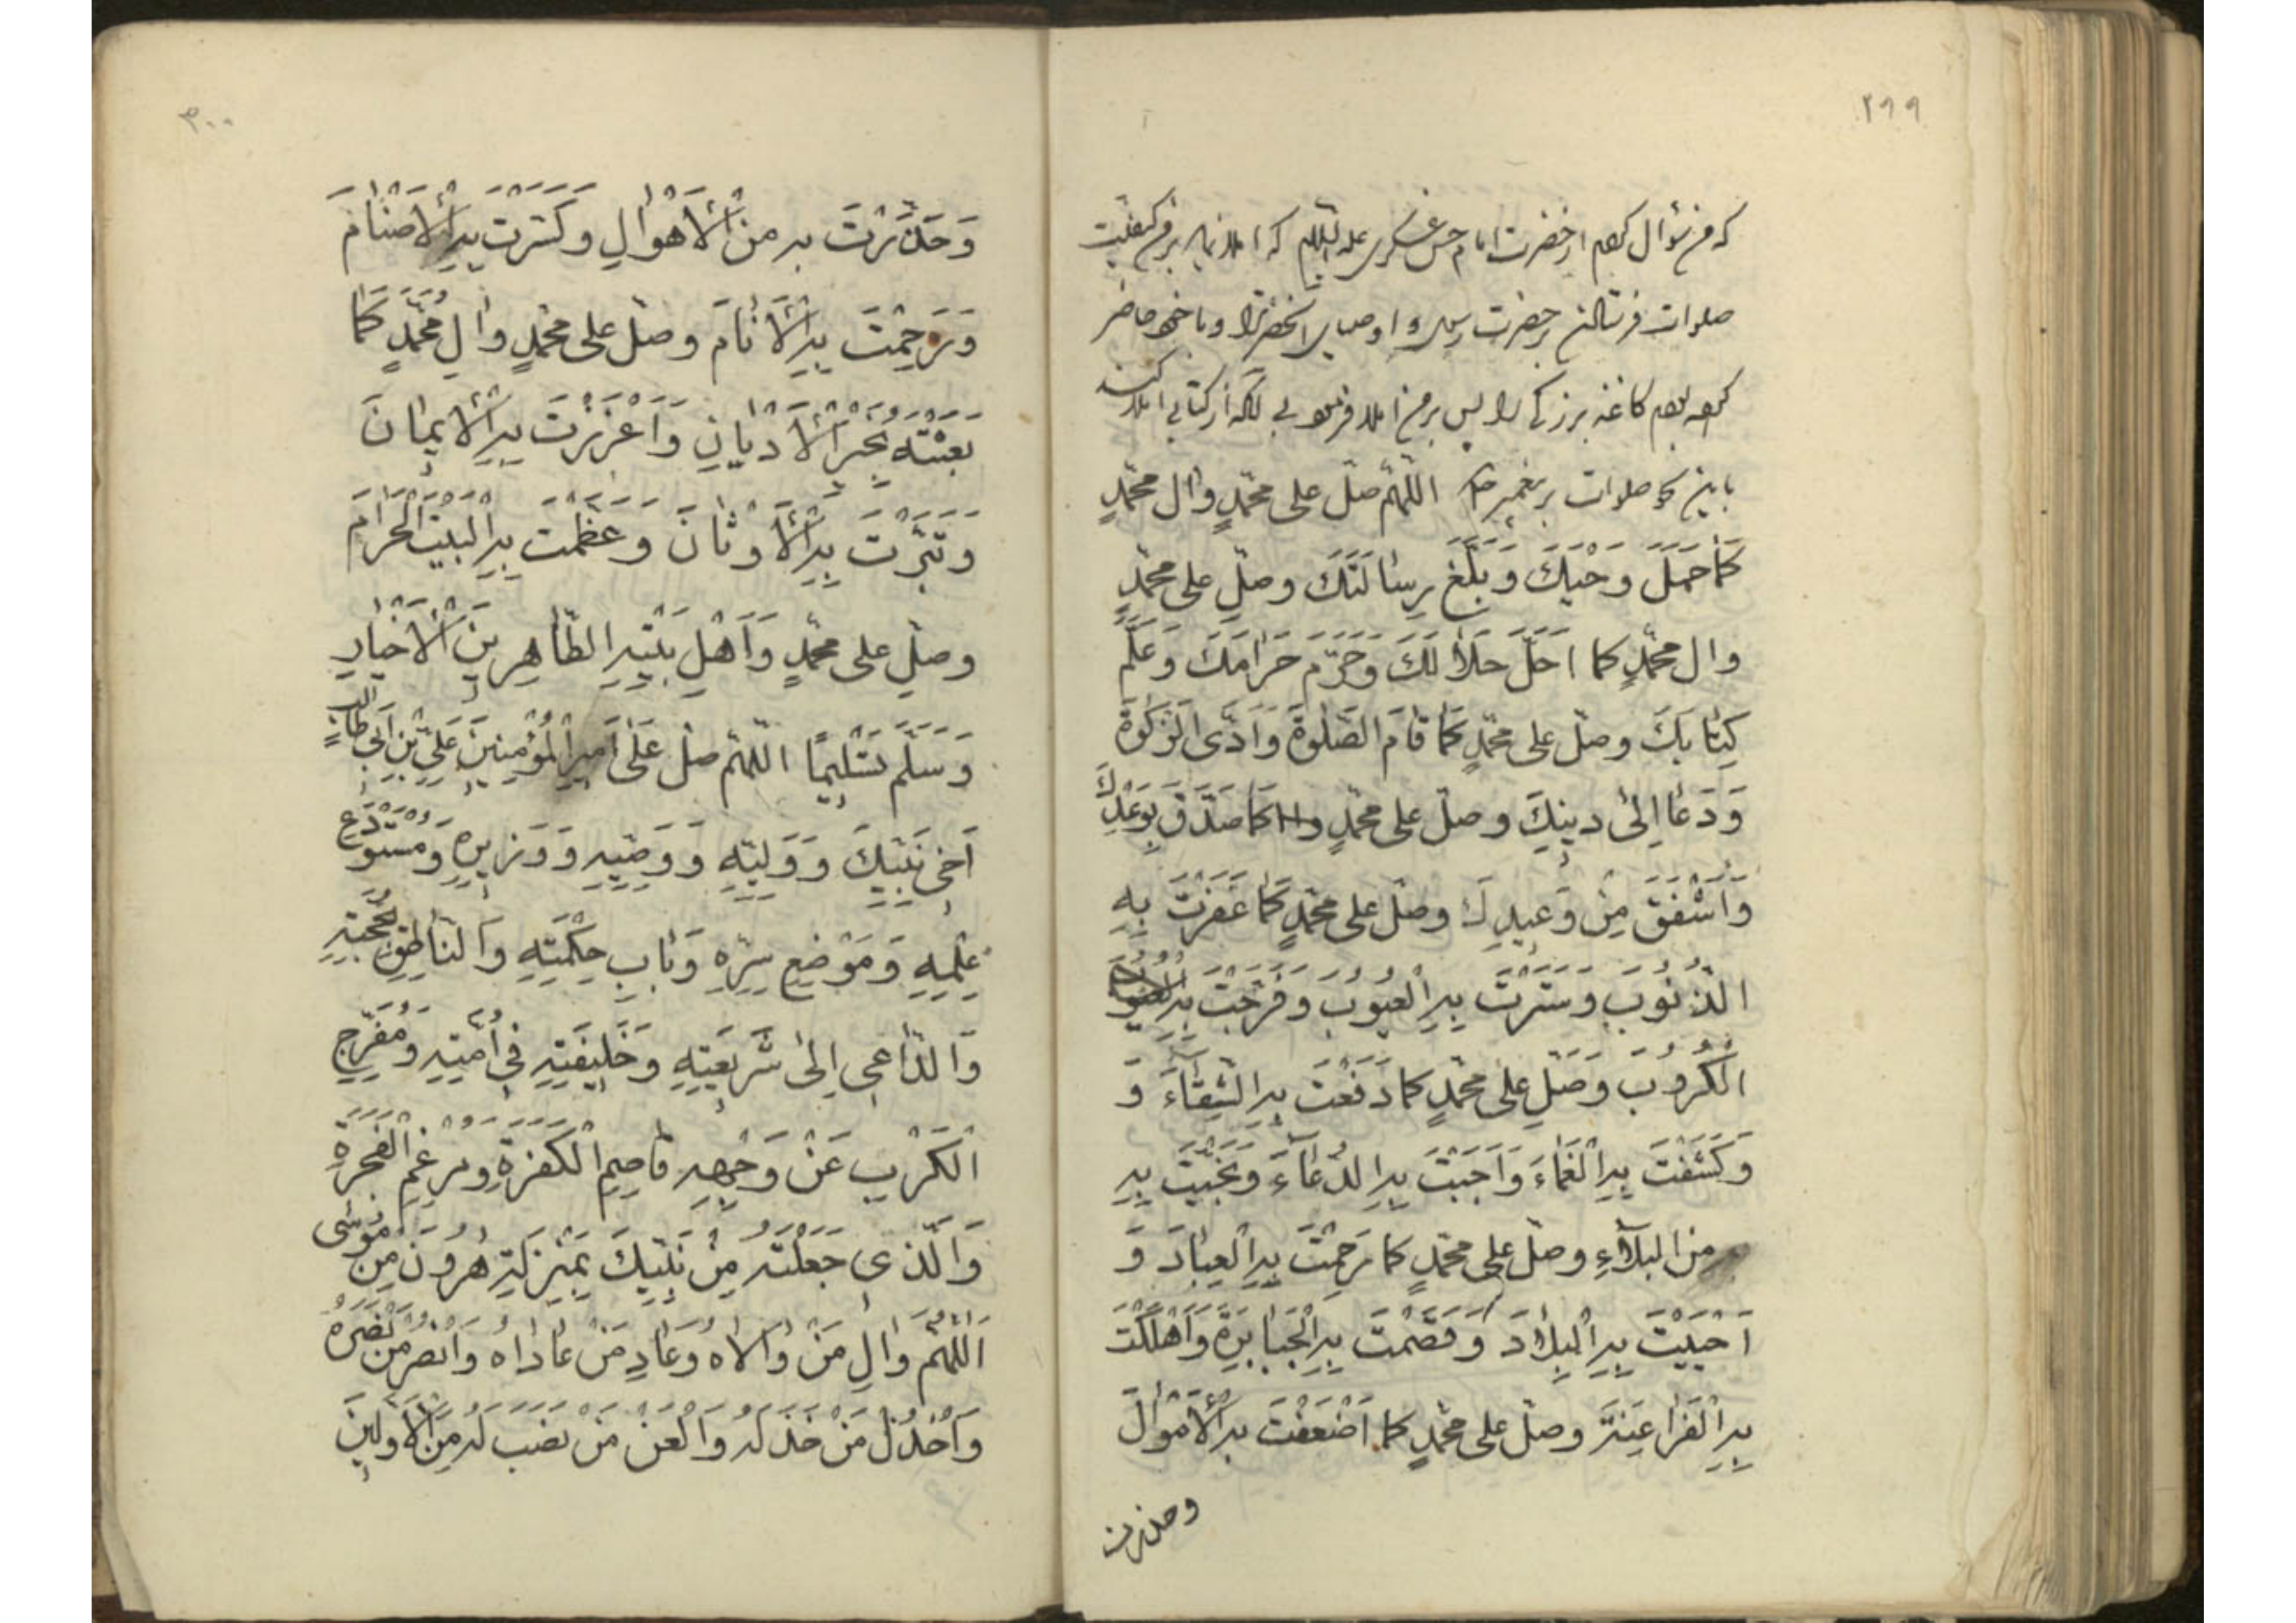 ۲۹۹
که من سؤال کردم از حضرت امام حسن عسکری علیه السلام که املا نماید بر من کیفیت
صلوات فرستادن بر حضرت رسول و اوصیای آنحضرت را و با خود حاضر
کرده بودم کاغذ بزرگی را پس بر من املا فرمود بی آنکه از کتابی املا کند
باین نحو صلوات بر پیغمبر ص اللّهمّ صلّ علی محمّدٍ وال محمّدٍ
كَمٰا حَمَلَ وَحْيَكَ وَبَلَّغَ رِسٰالَتَكَ وصلِّ علی محمّدٍ
وال محمّدٍ كما اَحَلَّ حَلٰالَكَ وَحَرَّمَ حَرٰامَكَ وَعَلَّمَ
كِتٰابَكَ وصلّ علی محمّدٍ كَمٰا قٰامَ الصَّلٰوةَ وَاَدَّى الزَّكٰوةَ
وَدَعٰا اِلىٰ دينِكَ وصلّ علی محمّدٍ واله كَمٰا صَدَّقَ بِوَعْدِكَ
وَاَشْفَقَ مِنْ وَعيدِكَ وصلّ علی محمّدٍ كَمٰا غَفَرْتَ بِهِ
الذُّنُوبَ وسَتَرْتَ بِهِ الْعُيُوبَ وَفَرَّجْتَ بِهِ
الْكُرُوبَ وَصَلِّ علی محمّدٍ كما دَفَعْتَ بِهِ الشَّقٰآءَ وَ
وَكَشَفْتَ بِهِ الْغَمٰاءَ وَاَجَبْتَ بِهِ الدُّعٰآءَ وَنَجَّيْتَ بِهِ
مِنَ الْبَلٰآءِ وصلّ علی محمّدٍ كما رَحِمْتَ بِهِ الْعِبٰادَ وَ
اَحْيَيْتَ بِهِ الْبِلٰادَ وَقَصَمْتَ بِهِ الْجَبٰابِرَةَ وَاَهْلَكْتَ
بِهِ الْفَرٰاعِنَةَ وصلّ علی محمّدٍ كما اَضْعَفْتَ بِهِ الْاَمْوٰالَ
وحذرت
۳۰۰
وَحَذَّرْتَ بِهِ مِنَ الْاَهْوٰالِ وكَسَرْتَ بِهِ الْاَصْنٰامَ
وَرَحِمْتَ بِهِ الْاَنٰامَ وصلّ علی محمّدٍ وٰالِ مُحَمَّدٍ كَمٰا
بَعَثْتَهُ بِخَيْرِ الْاَدْيٰانِ وَاَعْزَزْتَ بِهِ الْايمٰانَ
وَتَبَّرْتَ بِهِ الْاَوْثٰانَ وَعَظَّمْتَ بِهِ الْبَيْتَ الْحَرٰامَ
وصلِّ علی محمّدٍ وَاَهْلِ بَيْتِهِ الطّٰاهِرينَ الْاَخْيٰارِ
وَسَلَّمَ تَسْليمًا اللّهمّ صلّ عَلىٰ اَميرِ الْمُؤْمِنينَ عَلِيِّ بْنِ اَبي طالبٍ
اَخي نَبِيِّكَ وَوَلِيِّهِ وَوَصِيِّهِ وَوَزيرِهِ وَمُسْتَوْدَعِ
عِلْمِهِ وَمَوْضِعِ سِرِّهِ وَبٰابِ حِكْمَتِهِ وَالنّٰاطِقِ بِحُجَّتِهِ
وَالدّٰاعي اِلىٰ شَريعَتِهِ وَخَليفَتِهِ في اُمَّتِهِ وَمُفَرِّجِ
الْكَرْبِ عَنْ وَجْهِهِ قٰاصِمِ الْكَفَرَةِ وَمُرْغِمِ الْفَجَرَةِ
وَالَّذي جَعَلْتَهُ مِنْ نَبِيِّكَ بِمَنْزِلَةِ هٰرُونَ مِنْ مُوسٰى
اَللّٰهُمَّ وٰالِ مَنْ وٰالاهُ وَعٰادِ مَنْ عٰادٰاهُ وَانْصُرْ مَنْ نَصَرَهُ
وَاخْذُلْ مَنْ خَذَلَهُ وَالْعَنْ مَنْ نَصَبَ لَهُ مِنَ الْاَوَّلينَ